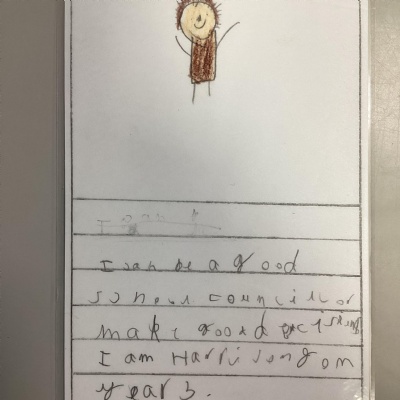 I can be a good
school councillor
make good decisions
I am Harrison from
year 3.